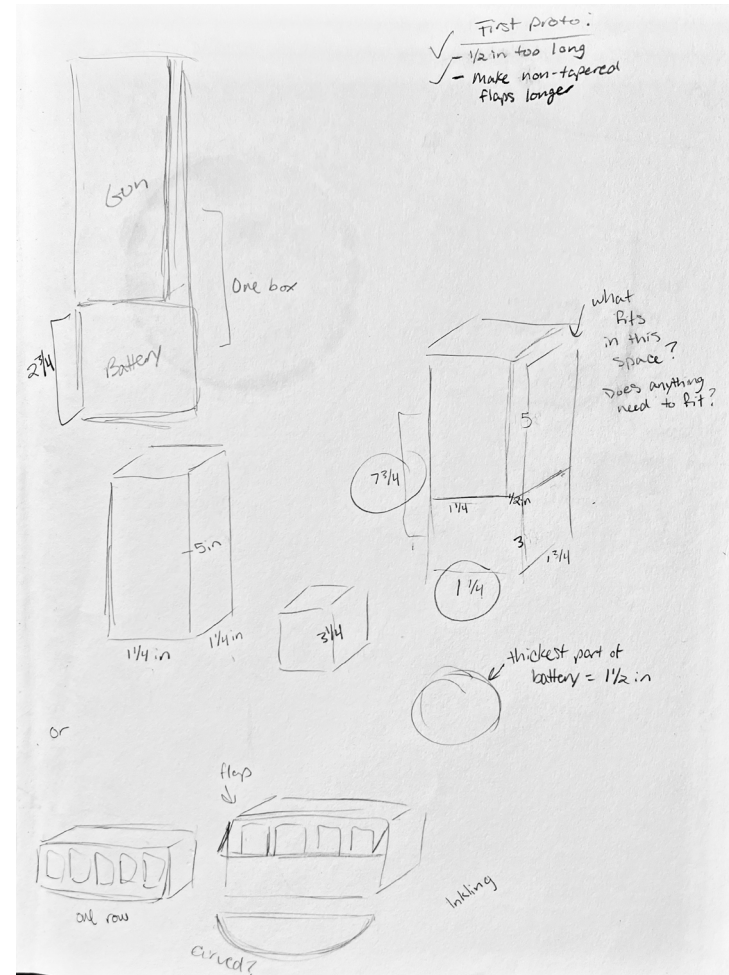 First proto:
- 1/2 in too long
- make non-tapered
flaps longer
Gun
One box
Battery
2 3/4
what
fits
in this
space?
Does anything
need to fit?
5
7 3/4
1 1/4
1/2 in
3
1 3/4
1 1/4
5 in
1 1/4 in
1 1/4 in
3 1/4
thickest part of
battery = 1 1/2 in
or
flap
one row
curved?
Inkling